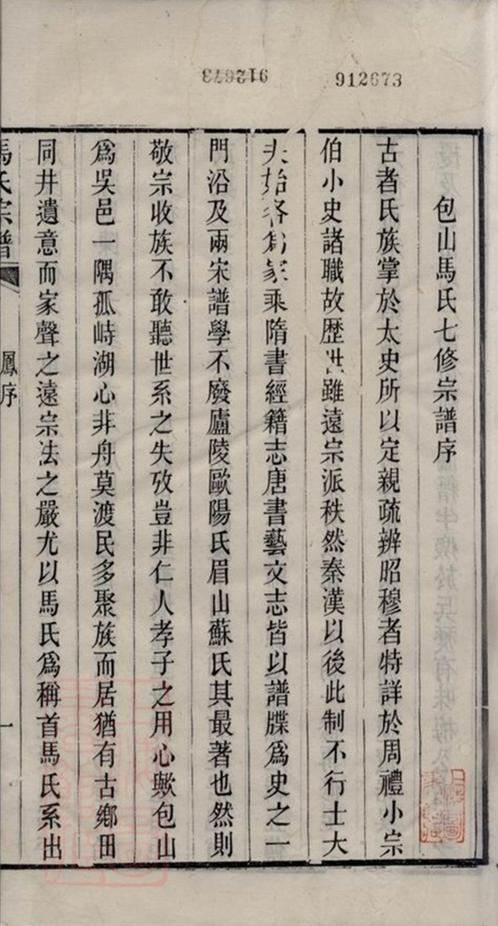 912673
包山馬氏七修宗譜序
古者氏族掌於太史所以定親疏辨昭穆者特詳於周禮小宗
伯小史諸職故歷世雖遠宗派秩然秦漢以後此制不行士大
夫始各爲家乘隋書經籍志唐書藝文志皆以譜牒爲史之一
門沿及兩宋譜學不廢廬陵歐陽氏眉山蘇氏其最著也然則
敬宗收族不敢聽世系之失攷豈非仁人孝子之用心歟包山
爲吳邑一隅孤峙湖心非舟莫渡民多聚族而居猶有古鄉田
同井遺意而家聲之遠宗法之嚴尤以馬氏爲稱首馬氏系出
馬氏宗譜 鳳序 一